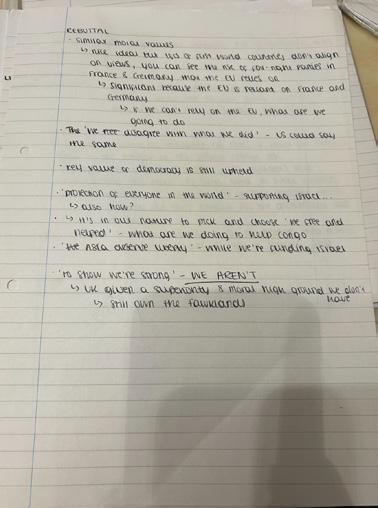 REBUTTAL
· similar moral values
↳ nice ideal but lots of first world countries don't align
on views, you can see the rise of far-right parties in
France & Germany that the EU relies on
↳ significant because the EU is reliant on France and
Germany
↳ if we can't rely on the EU, what are we
going to do
· The 'we disagree with what we did' - US could say
the same
· key value of democracy is still upheld
· 'protection of everyone in the world' - supporting Israel...
↳ also how?
· ↳ it's in our nature to pick and choose 'we free and
helped' - what are we doing to help Congo
· 'the deserve liberty' - while we're funding Israel
'to show we're strong' - WE AREN'T
↳ UK given a superiority & moral high ground we don't
have
↳ still own the Fawklands